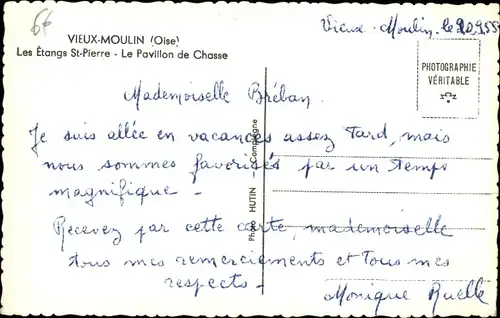 6f
Vieux-Moulin, le 20.9.55
VIEUX-MOULIN (Oise)
Les Étangs St-Pierre - Le Pavillon de Chasse
PHOTOGRAPHIE
VÉRITABLE
Mademoiselle Bréban.
Je suis allée en vacances assez tard, mais
nous sommes favorisés par un temps
magnifique -
Recevez par cette carte, mademoiselle
tous mes remerciements et tous mes
respects -
Monique Ruelle
Photo HUTIN Compiègne